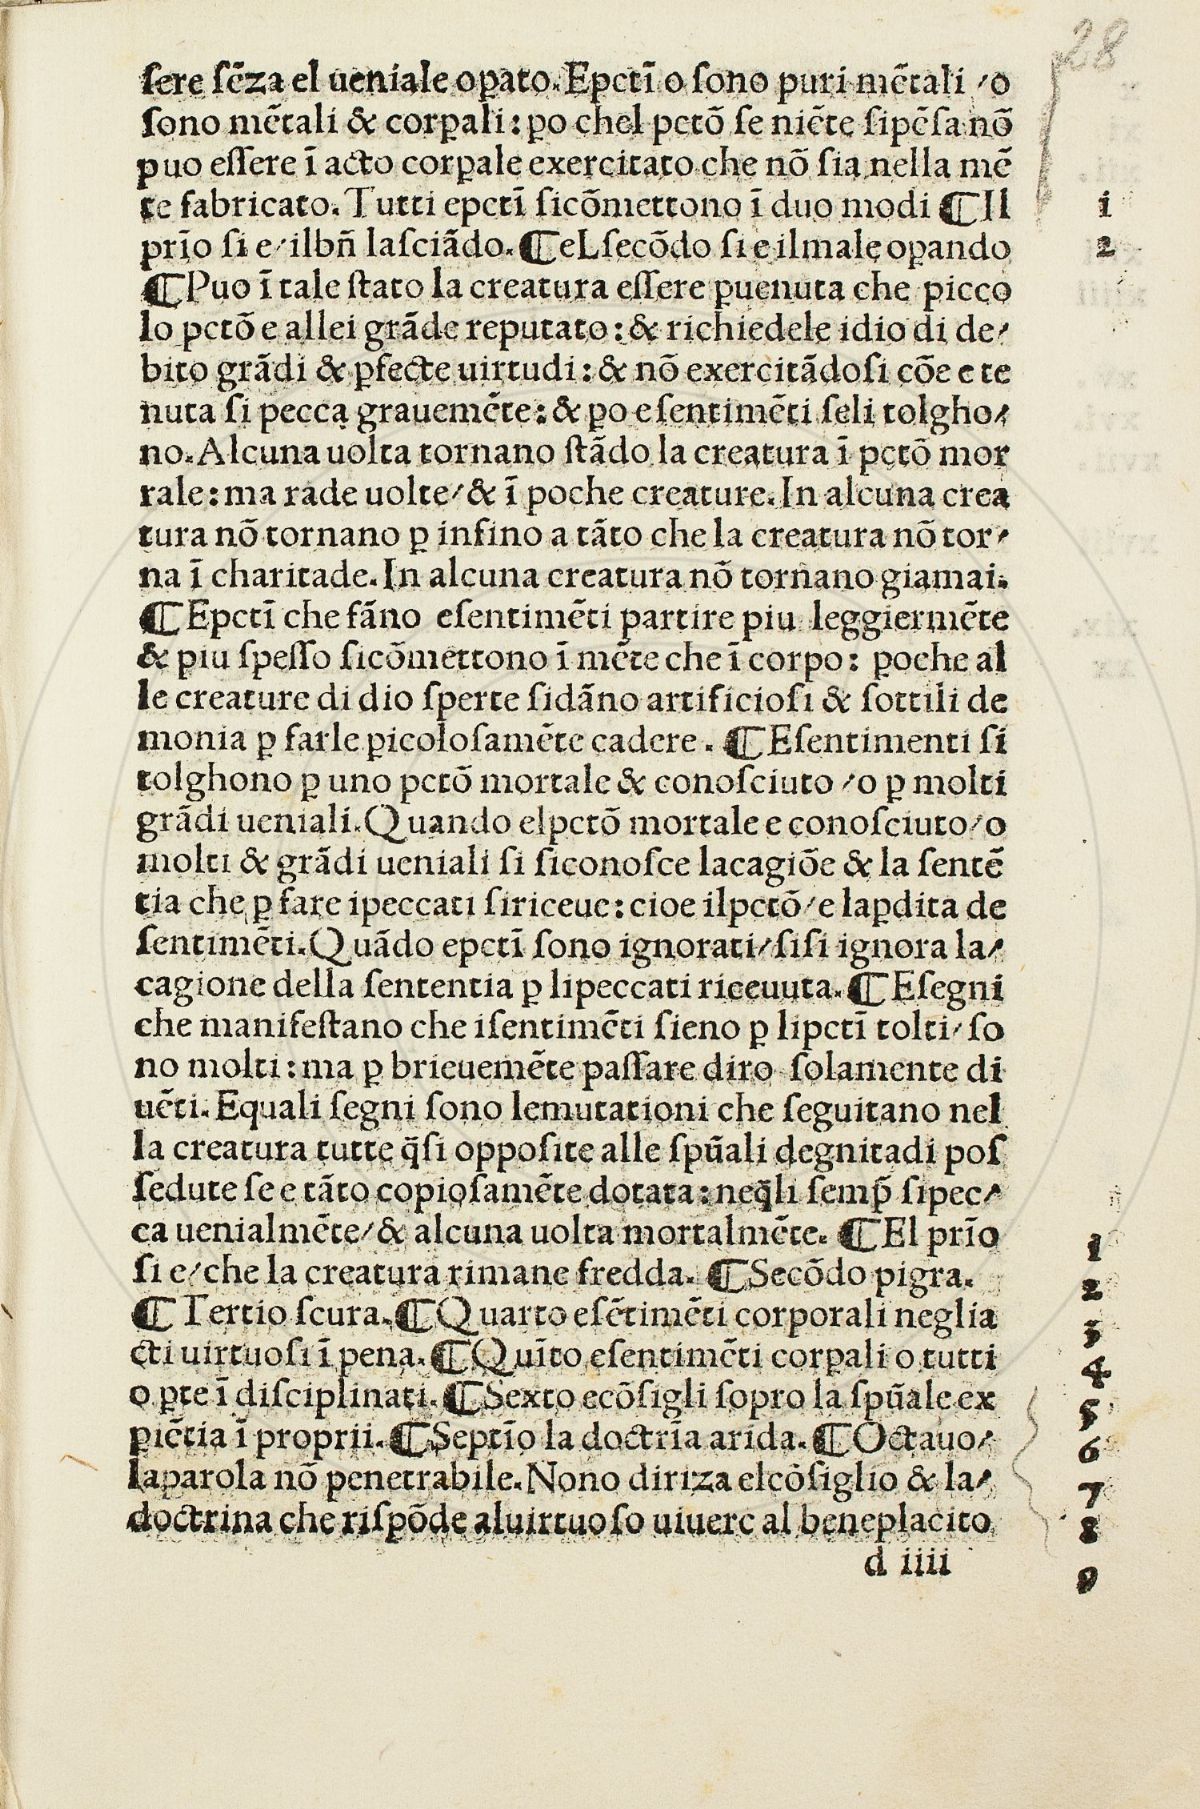 28
sere sēza el ueniale oꝑato. Epctī o sono puri mētali /o
sono mētali & corꝑali: ꝑo chel pctō se niēte sipēsa nō
puo essere ī acto corꝑale exercitato che nō sia nella mē
te fabricato. Tutti epctī sicōmettono ī duo modi ¶Il 1
prīo si e/ ilbn̄ lasciādo. ¶eLsecōdo si e ilmale oꝑando 2
¶Puo ī tale stato la creatura essere ꝑuenuta che picco
lo pctō e allei grāde reputato: & richiedele idio di de/
bito grādi & ꝑfecte uirtudi: & nō exercitādosi cōe e te
nuta si pecca grauemēte: & ꝑo esentimēti seli tolgho/
no. Alcuna uolta tornano stādo la creatura ī pctō mor
tale: ma rade uolte/ & ī poche creature. In alcuna crea
tura nō tornano ꝑ infino a tāto che la creatura nō tor/
na ī charitade. In alcuna creatura nō tornano giamai.
¶Epctī che fāno esentimēti partire piu leggiermēte
& piu spesso sicōmettono ī mēte che ī corpo: ꝑoche al
le creature di dio sperte sidāno artificiosi & sottili de
monia ꝑ farle ꝑicolosamēte cadere. ¶Esentimenti si
tolghono ꝑ uno pctō mortale & conosciuto /o ꝑ molti
grādi ueniali. Quando elpctō mortale e conosciuto/ o
molti & grādi ueniali si siconosce lacagiōe & la sentē
tia che ꝑ fare ipeccati siriceue: cioe ilpctō/ e laꝑdita de
sentimēti. Quādo epctī sono ignorati/ sisi ignora la/
cagione della sententia ꝑ lipeccati riceuuta. ¶Esegni
che manifestano che isentimēti sieno ꝑ lipctī tolti/ so
no molti: ma ꝑ brieuemēte passare diro solamente di
uēti. Equali segni sono lemutationi che seguitano nel
la creatura tutte q̄si opposite alle spūali degnitadi pos
sedute se e tāto copiosamēte dotata: neq̄li semp̄ sipec/
ca uenialmēte/ & alcuna uolta mortalmēte. ¶El prīo 1
si e/ che la creatura rimane fredda. ¶Secōdo pigra. 2
¶Tertio scura. ¶Quarto esētimēti corporali neglia 3
cti uirtuosi ī pena. ¶Quīto esentimēti corꝑali o tutti 4
o ꝑte ī disciplinati. ¶Sexto ecōsigli sopro la spūale ex 5
ꝑiētia ī proprii. ¶Septīo la doctria arida. ¶Octauo/ 6
laparola nō penetrabile. Nono diriza elcōsiglio & la/ 7
doctrina che rispōde aluirtuoso uiuere al beneplacito 8
d iiii 9